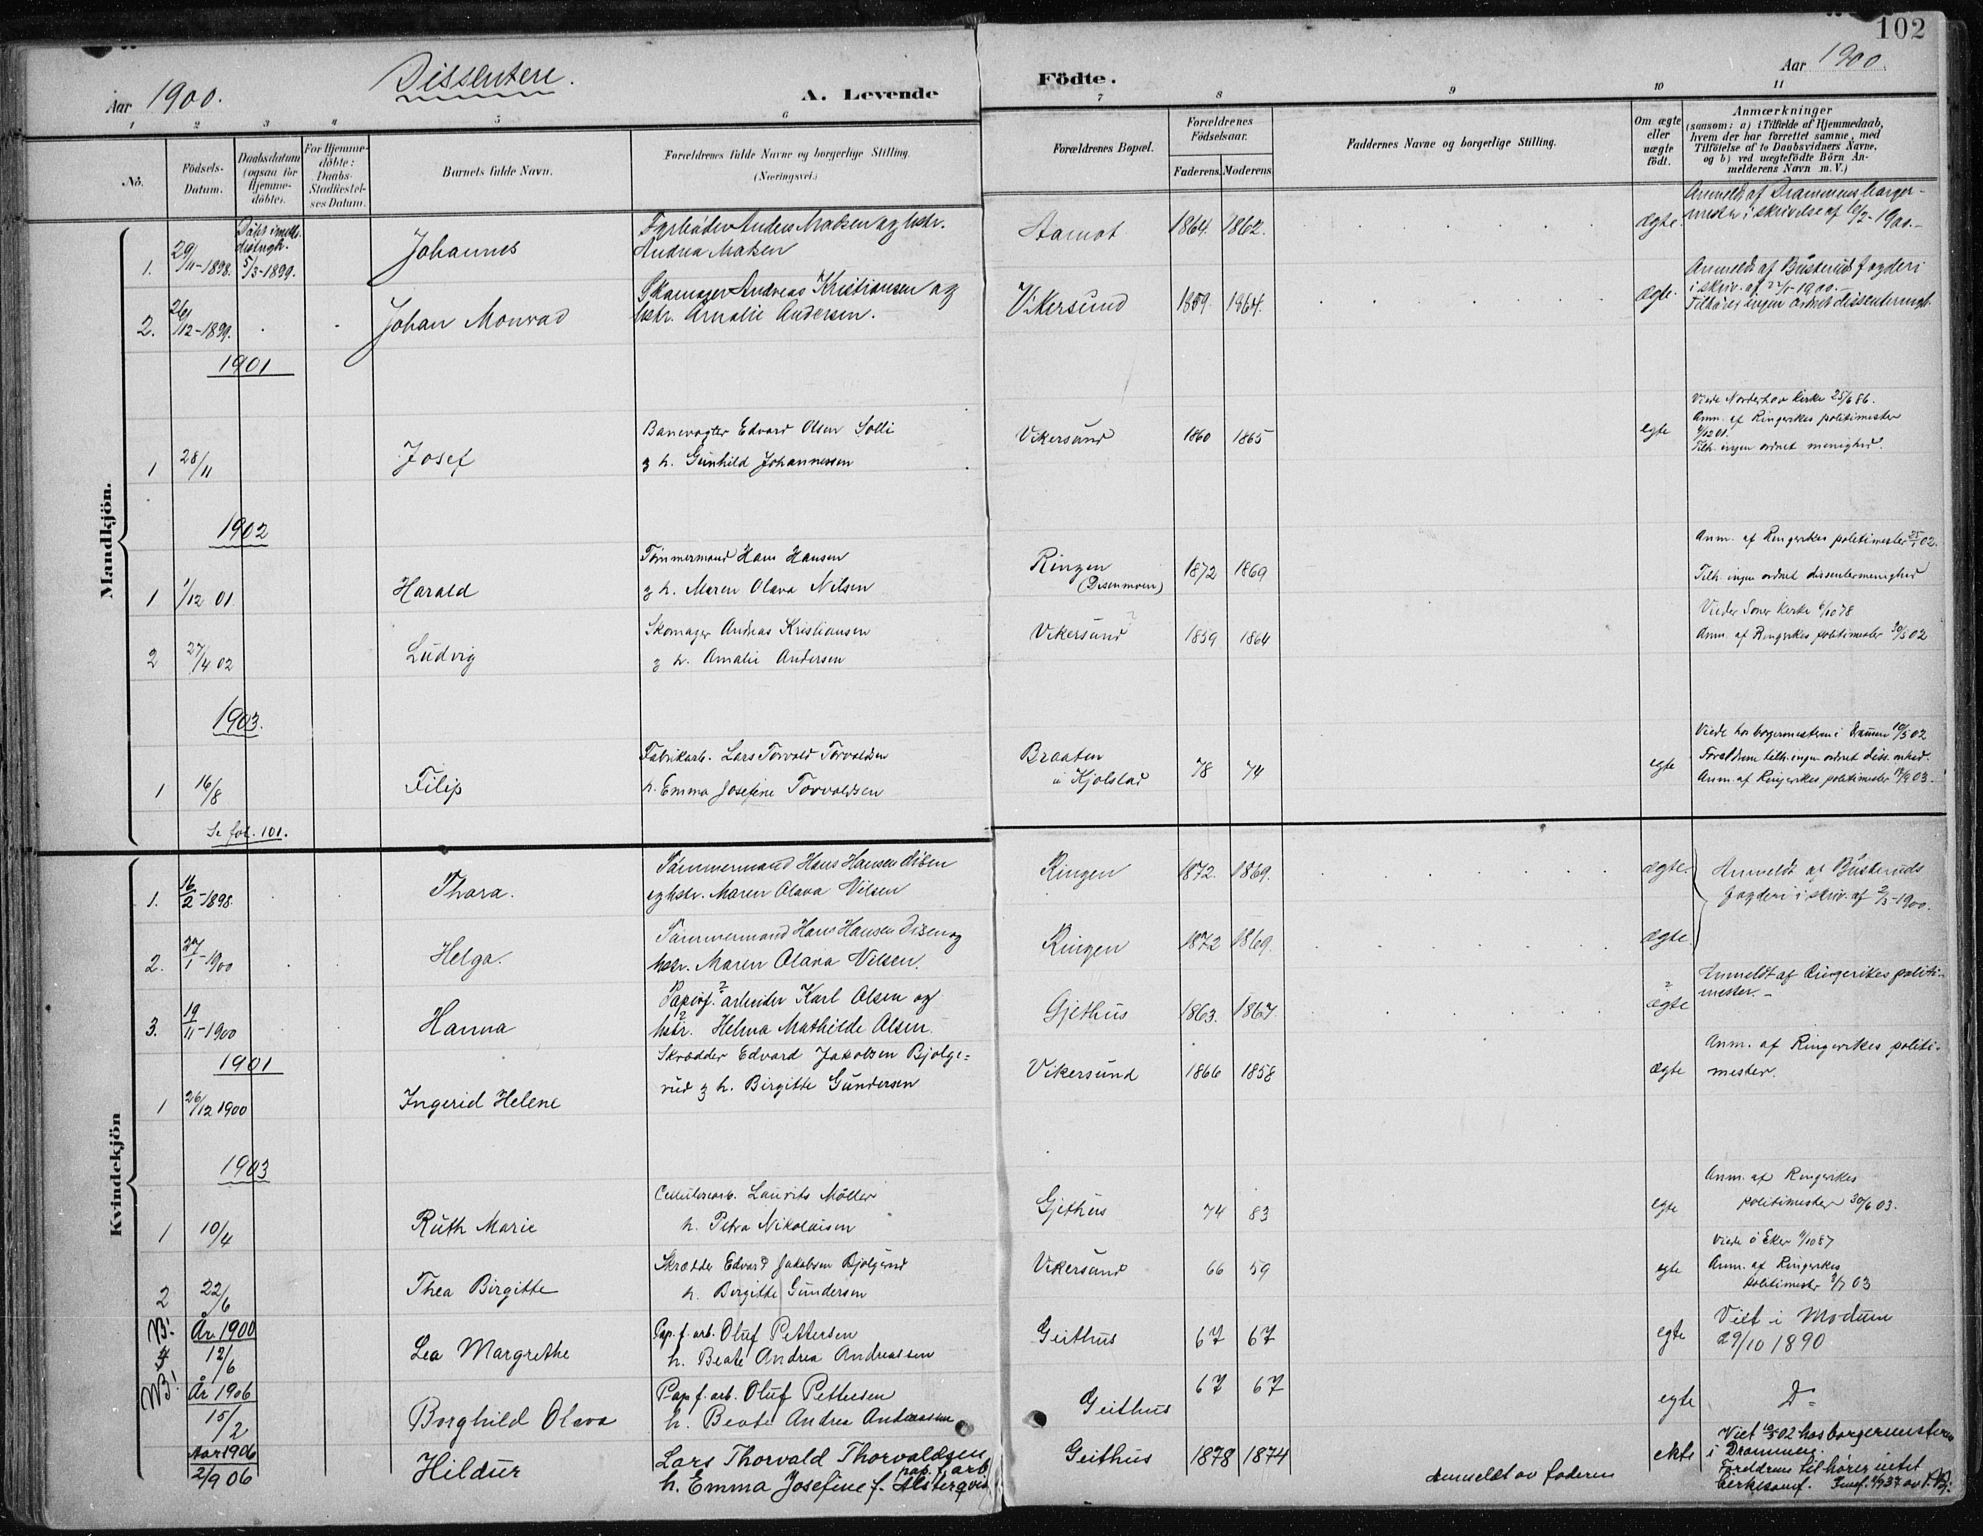 102
Aar 1900.
Dissentere.
A. Levende
Födte.
Aar 1900.
1 2 3 4 5 6 7 8 9 10 11
No.
Födsels-Datum.
Daabsdatum (ogsaa for Hjemme-döbte).
For Hjemme-döbte: Daabs-Stadfæstel-ses Datum.
Barnets fulde Navn.
Forældrenes fulde Navne og borgerlige Stilling.
(Næringsvei.)
Forældrenes Bopæl.
Forældrenes Födselsaar.
Faderens. Moderens.
Faddernes Navne og borgerlige Stilling.
Om ægte eller uægte födt.
Anmærkninger
(saasom: a) i Tilfælde af Hjemmedaab,
hvem der har forrettet samme, med
Tilföielse af to Daabsvidners Navne,
og b) ved uægtefödte Börn An-
melderens Navn m. V.)
Mandkjön.
1. 29/11-1898. Døbt i meth. 5/3-1899. Johannes
Andrea Madsen
Aamot 1864. 1862. ægte.
Anmeldt af Drammens borger-
mester i skrivelse af 10/2-1900.-
2. 26/12-1899. Johan Monrad
Skomager Andreas Kristiansen og
hstr. Amalie Andersen.
Vikersund 1859. 1864. ægte.
Anmeldt af Buskeruds fogderi
i skriv. af 1900.-
Tilhører ingen ordnet dissentermgh.
1901
1 28/11 Josef
Banevogter Edvard Olsen Solli
og h. Gunhild Johannessen
Vikersund 1860 1865 egte
Viede Norderhov kirke 25/6 86.
Anm. af Ringerikes politimester
Tilh. ingen ordnet menighed.
1902
1 1/12 01 Harald
Tømmermand Hans Hansen
og h. Maren Olava Nilsen
Ringen
(Disenmoen)
1872 1869
Anm. af Ringerikes politimester 25/1 02.
Tilh. ingen ordnet dissentermenighed
2 27/4 02 Ludvig
Skomager Andreas Kristiansen
og h. Amalie Andersen
Vikersund 1859 1864
Anm. af Ringerikes politimester 30/5 02
1903.
1 16/8 Filip
Fabrikarb. Lars Torvald Torvaldsen
h. Emma Josefine Torvaldsen
Braaten
u. Kjølstad
78 74 egte
Viede hos borgermesteren i Drammen 10/5 02
Forældrene tilh. ingen ordnet diss. mhed.
Anm. af Ringerikes politimester 03.
Se fol. 101.
Kvindekjön
1. 16/2-1898. Thora.
Tömmermand Hans Hansen Disen
og hstr. Maren Olava Nilsen
Ringen 1872. 1869. ægte.
Anmeldt af Buskeruds
fogderi i skriv. af 2/3-1900.
2. 27/1-1900 Helga.
Tömmermand Hans Hansen Disen og
hstr. Maren Olava Nilsen.
Ringen 1872 1869. ægte.
3. 19/11-1900 Hanna
Papirf.arbeider Karl Olsen og
hstr. Helma Mathilde Olsen.
Gjethus 1863. 1867. ægte
Anmeldt af Ringerikes politi-
mester.-
1901
1 26/12 1900 Ingerid Helene
Skrædder Edvard Jakobsen Bjølge=
rud og h. Birgitte Gundersen
Vikersund 1866 1858 ægte
Anm. af Ringerikes politi-
mester.
1903
1 10/4 Ruth Marie
Cellulosearb. Laurits Möller
h. Petra Nikolaisen
Gjethus 74 83 egte
Anm. af Ringerikes
politimester 30/6 03.
2 22/6 Thea Birgitte
Skrædder Edvard Jakobsen Bjølgerud
h. Birgitte Gundersen
Vikersund 66 59 egte
Anm. af Ringerikes
politimester 03
År 1900
4 12/6 Lea Margrethe
Pap.f.arb. Oluf Pettersen
h. Beate Andrea Andreassen
Geithus 67 67 egte
Viet i Modum
29/10 1890
År 1906
15/2 Borghild Olava
Pap.f.arb. Oluf Pettersen
h. Beate Andrea Andreassen
Geithus 67 67 egte
D=
Aar 1906
2/9 06 Hildur
Lars Thorvald Thorvaldsen
pap.f.arb.
h. Emma Josefine f. Alsterqvist
Geithus 1878 1874 ekte
Anmeldt av faderen
Viet 10/5 02 hos borgermesteren
i Drammen.
Foreldrene tilhører intet
kirkesamf.